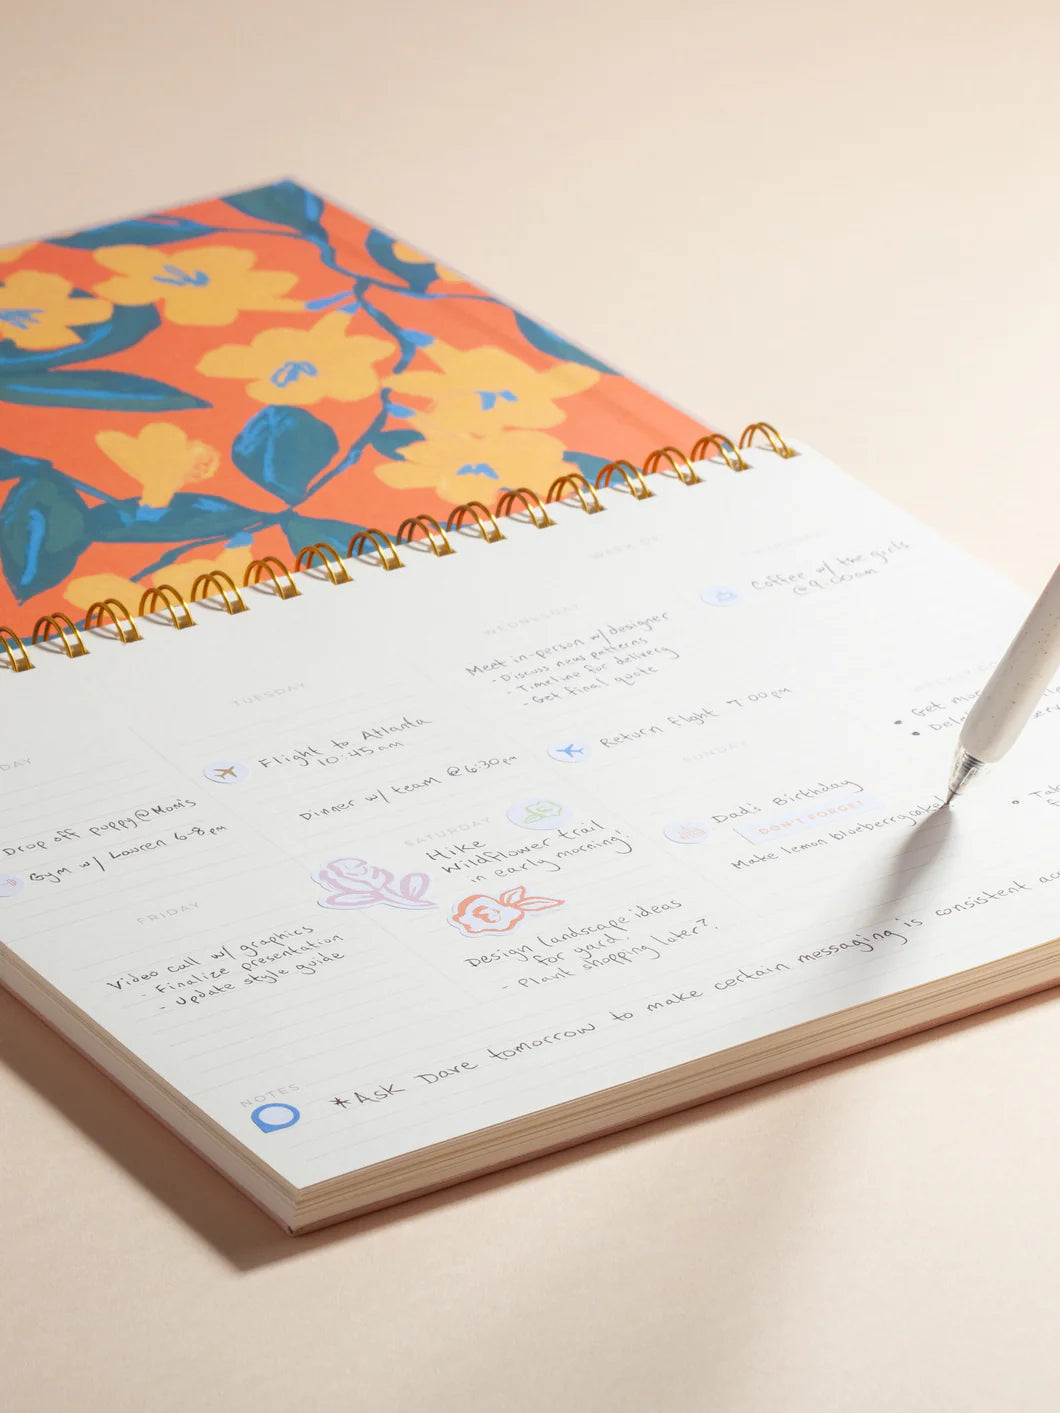 WEEK OF
DAY
Drop off puppy @ Mom's
Gym w/ Lauren 6-8 pm
TUESDAY
Flight to Atlanta
10:45 am
Dinner w/ team @ 6:30 pm
WEDNESDAY
Meet in-person w/ designer
- Discuss new patterns
- Timeline for delivery
- Get final quote
Return flight 7:00 pm
Coffee w/ the girls
@ 9:00 am
FRIDAY
Video call w/ graphics
- Finalize presentation
- Update style guide
SATURDAY
Hike
Wildflower trail
in early morning!
Design landscape ideas
for yard
- Plant shopping later?
SUNDAY
Dad's Birthday
DON'T FORGET
Make lemon blueberry cake!
• Get
NOTES
*Ask Dave tomorrow to make certain messaging is consistent